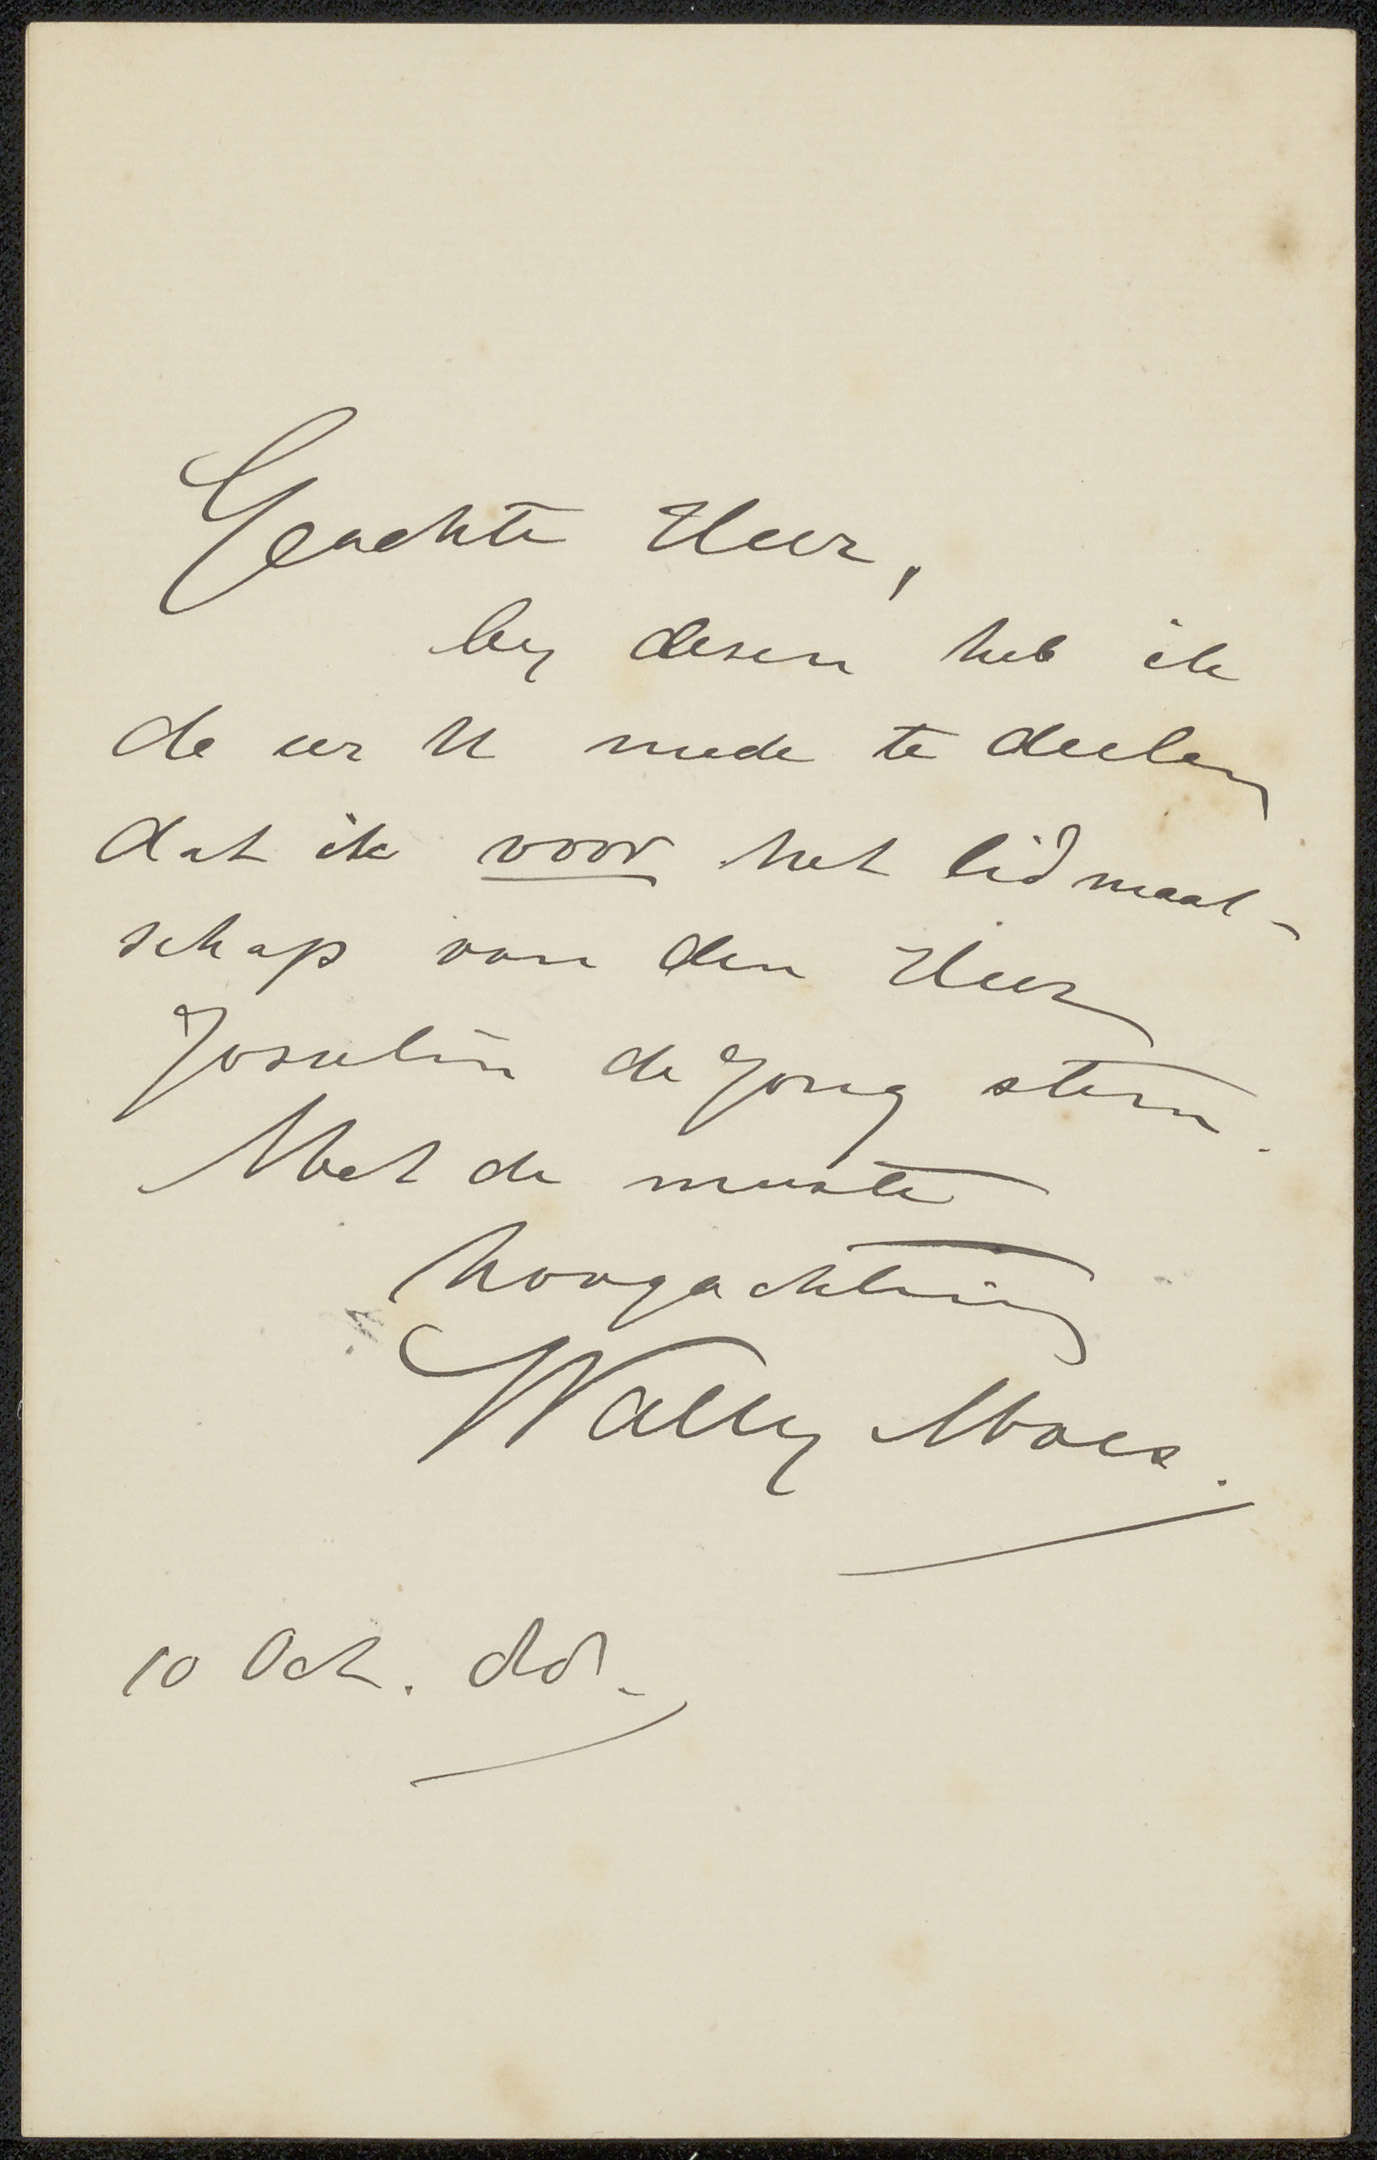 Geachte Heer,
by desen heb ik
de eer U mede te deelen
dat ik voor het lidmaat-
schap van den Heer
Josselin de Jong stem.
Met de meeste
hoogachting
Wally Moes.
10 Oct.